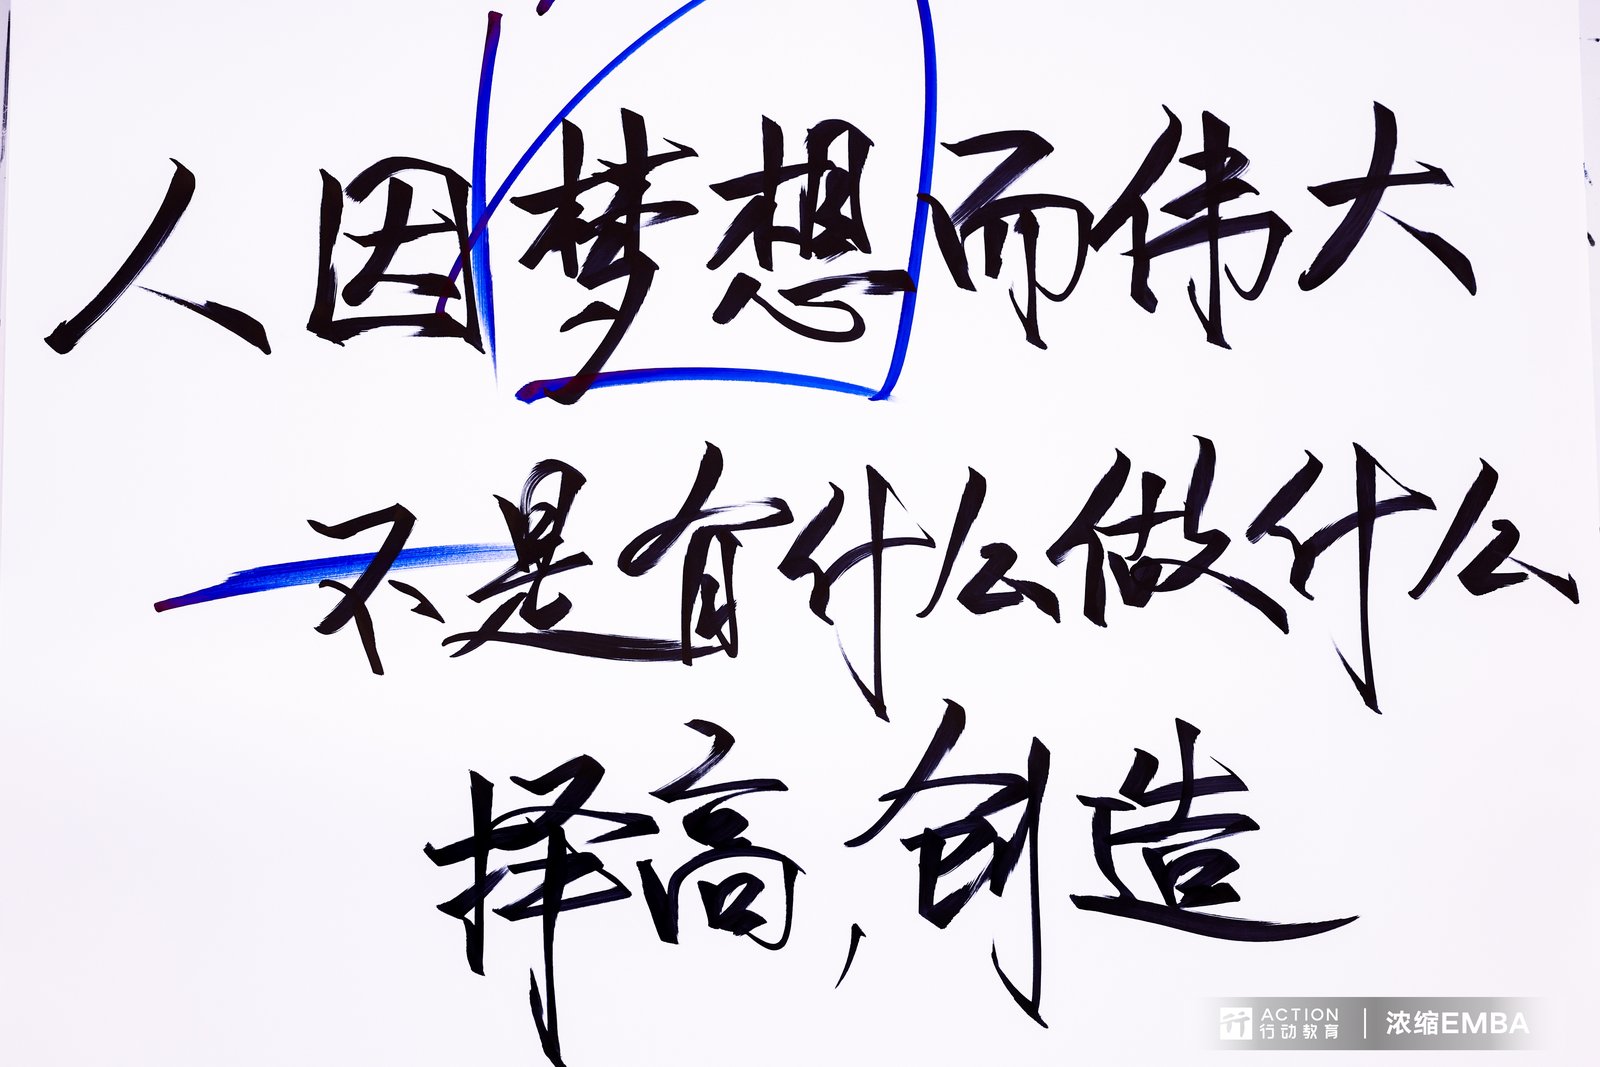 人因梦想而伟大
不是有什么做什么
择高,创造
ACTION
行动教育 | 浓缩EMBA